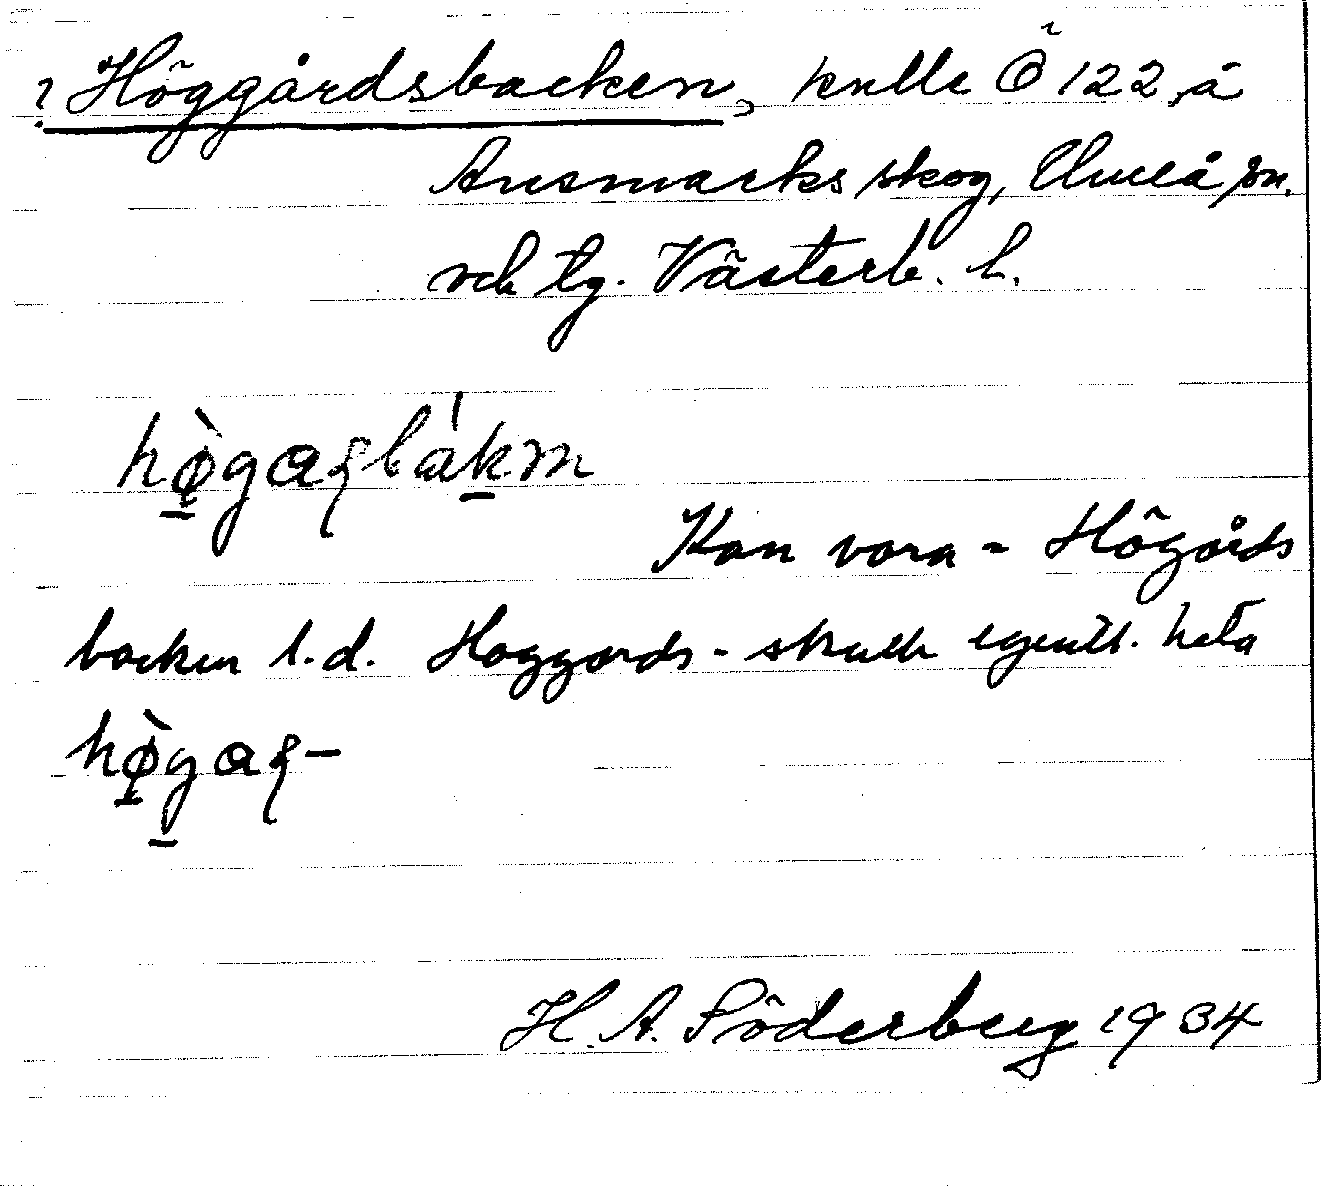 ? Höggårdsbacken, kulle Ö 122, å
Ansmarks skog, Umeå sn.
och tg. Västerb. l.
Kan vara - Högårds
backen l.d. Höggårds- skulle egentl. heta
H. A. Söderberg 1934